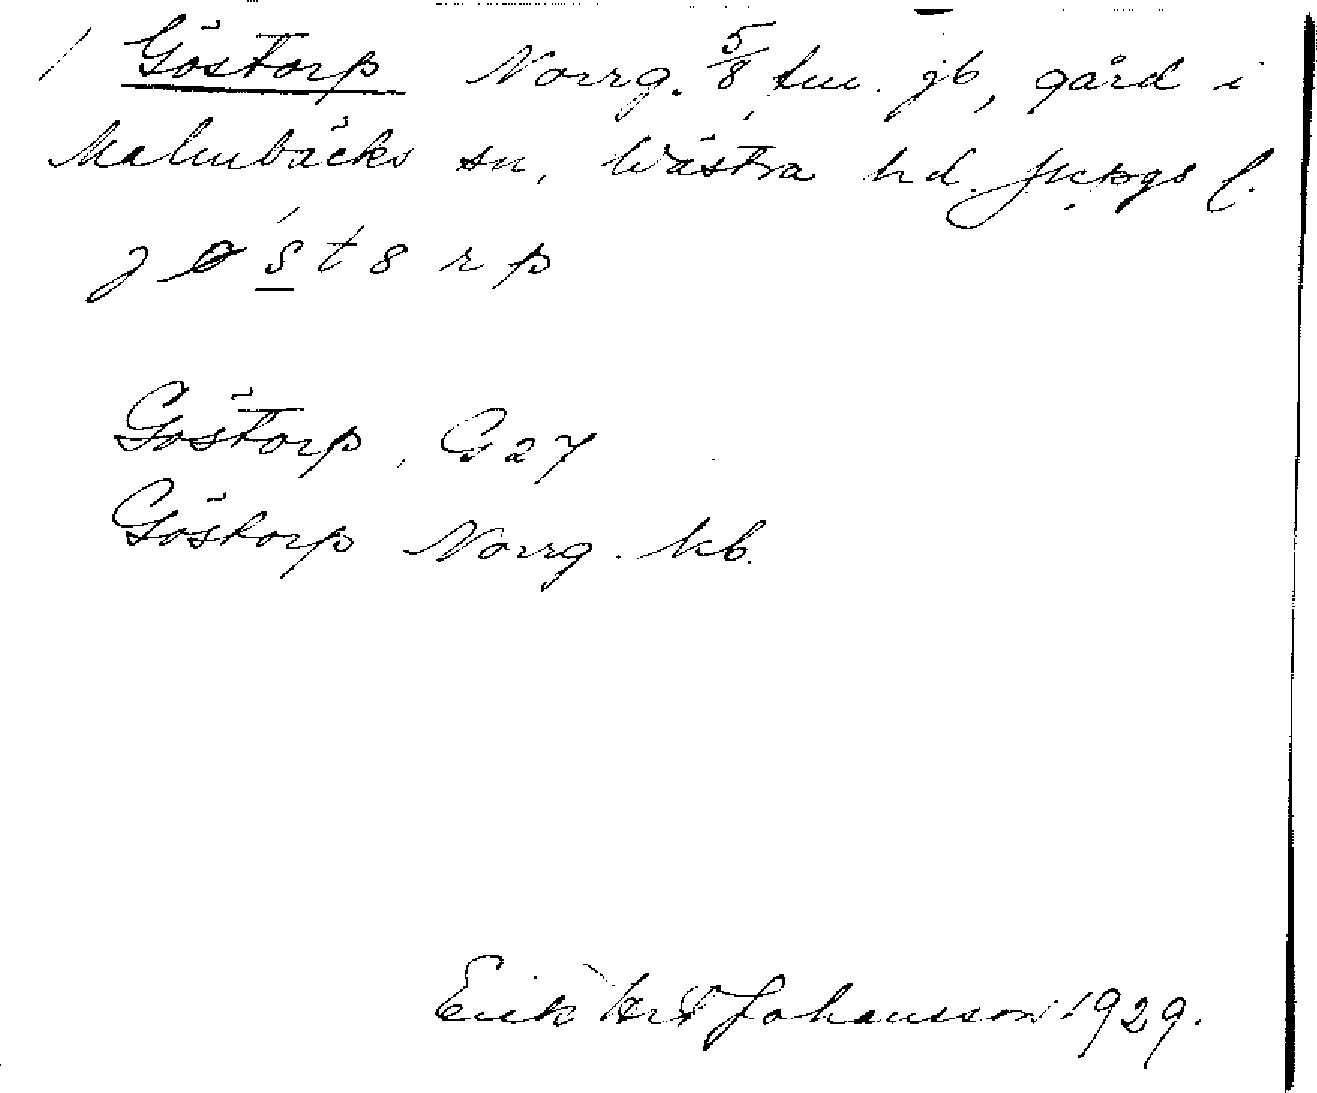 / Göstorp Norrg. 5/8 tm. jb, gård i
Malmbäcks sn, Västra hd. Jkpgs l.
Göstorp, G 27
Göstorp Norrg. kb.
Erik Johansson 1929.